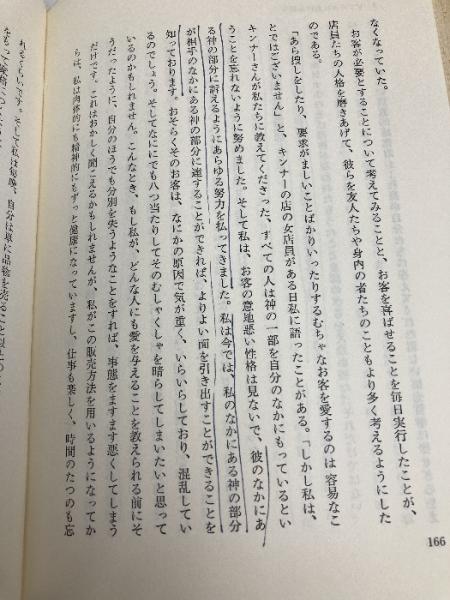 なくなっていた。
お客が必要とすることについて考えてみることと、お客を喜ばせることを毎日実行したことが、
店員たちの人格を磨きあげて、彼らを友人たちや身内の者たちのこともより多く考えるようにした
のである。
「あら捜しをしたり、要求がましいことばかりいったりするむちゃなお客を愛するのは 容易なこ
とではございません」と、キンナーの店の女店員がある日私に語ったことがある。「しかし私は、
キンナーさんが私たちに教えてくださった、すべての人は神の一部を自分のなかにもっているとい
うことを忘れないように努めました。そして私は、お客の意地悪い性格は見ないで、彼のなかにあ
る神の部分に訴えるようにあらゆる努力を払ってきました。私は今では、私のなかにある神の部分
が相手のなかにある神の部分に達することができれば、よりよい面を引き出すことができることを
知っております。おそらくそのお客は、なにかの原因で気が重く、いらいらしており、混乱してい
るのでしょう。そしてなににでも八つ当たりしてそのむしゃくしゃを晴らしてしまいたいと思って
いるのかもしれません。こんなとき、もし私が、どんな人にも愛を与えることを教えられる前にそ
うだったように、自分のほうでも分別を失うようなことをすれば、事態をますます悪くしてしまう
だけです。これはおかしく聞こえるかもしれませんが、私がこの販売方法を用いるようになってか
らは、私は肉体的にも精神的にもずっと健康になっていますし、仕事も楽しく、時間のたつのも忘
れるくらいです。そして私は毎晩、自分は単に品物を売ること以上のこと
をもって家路につく
166